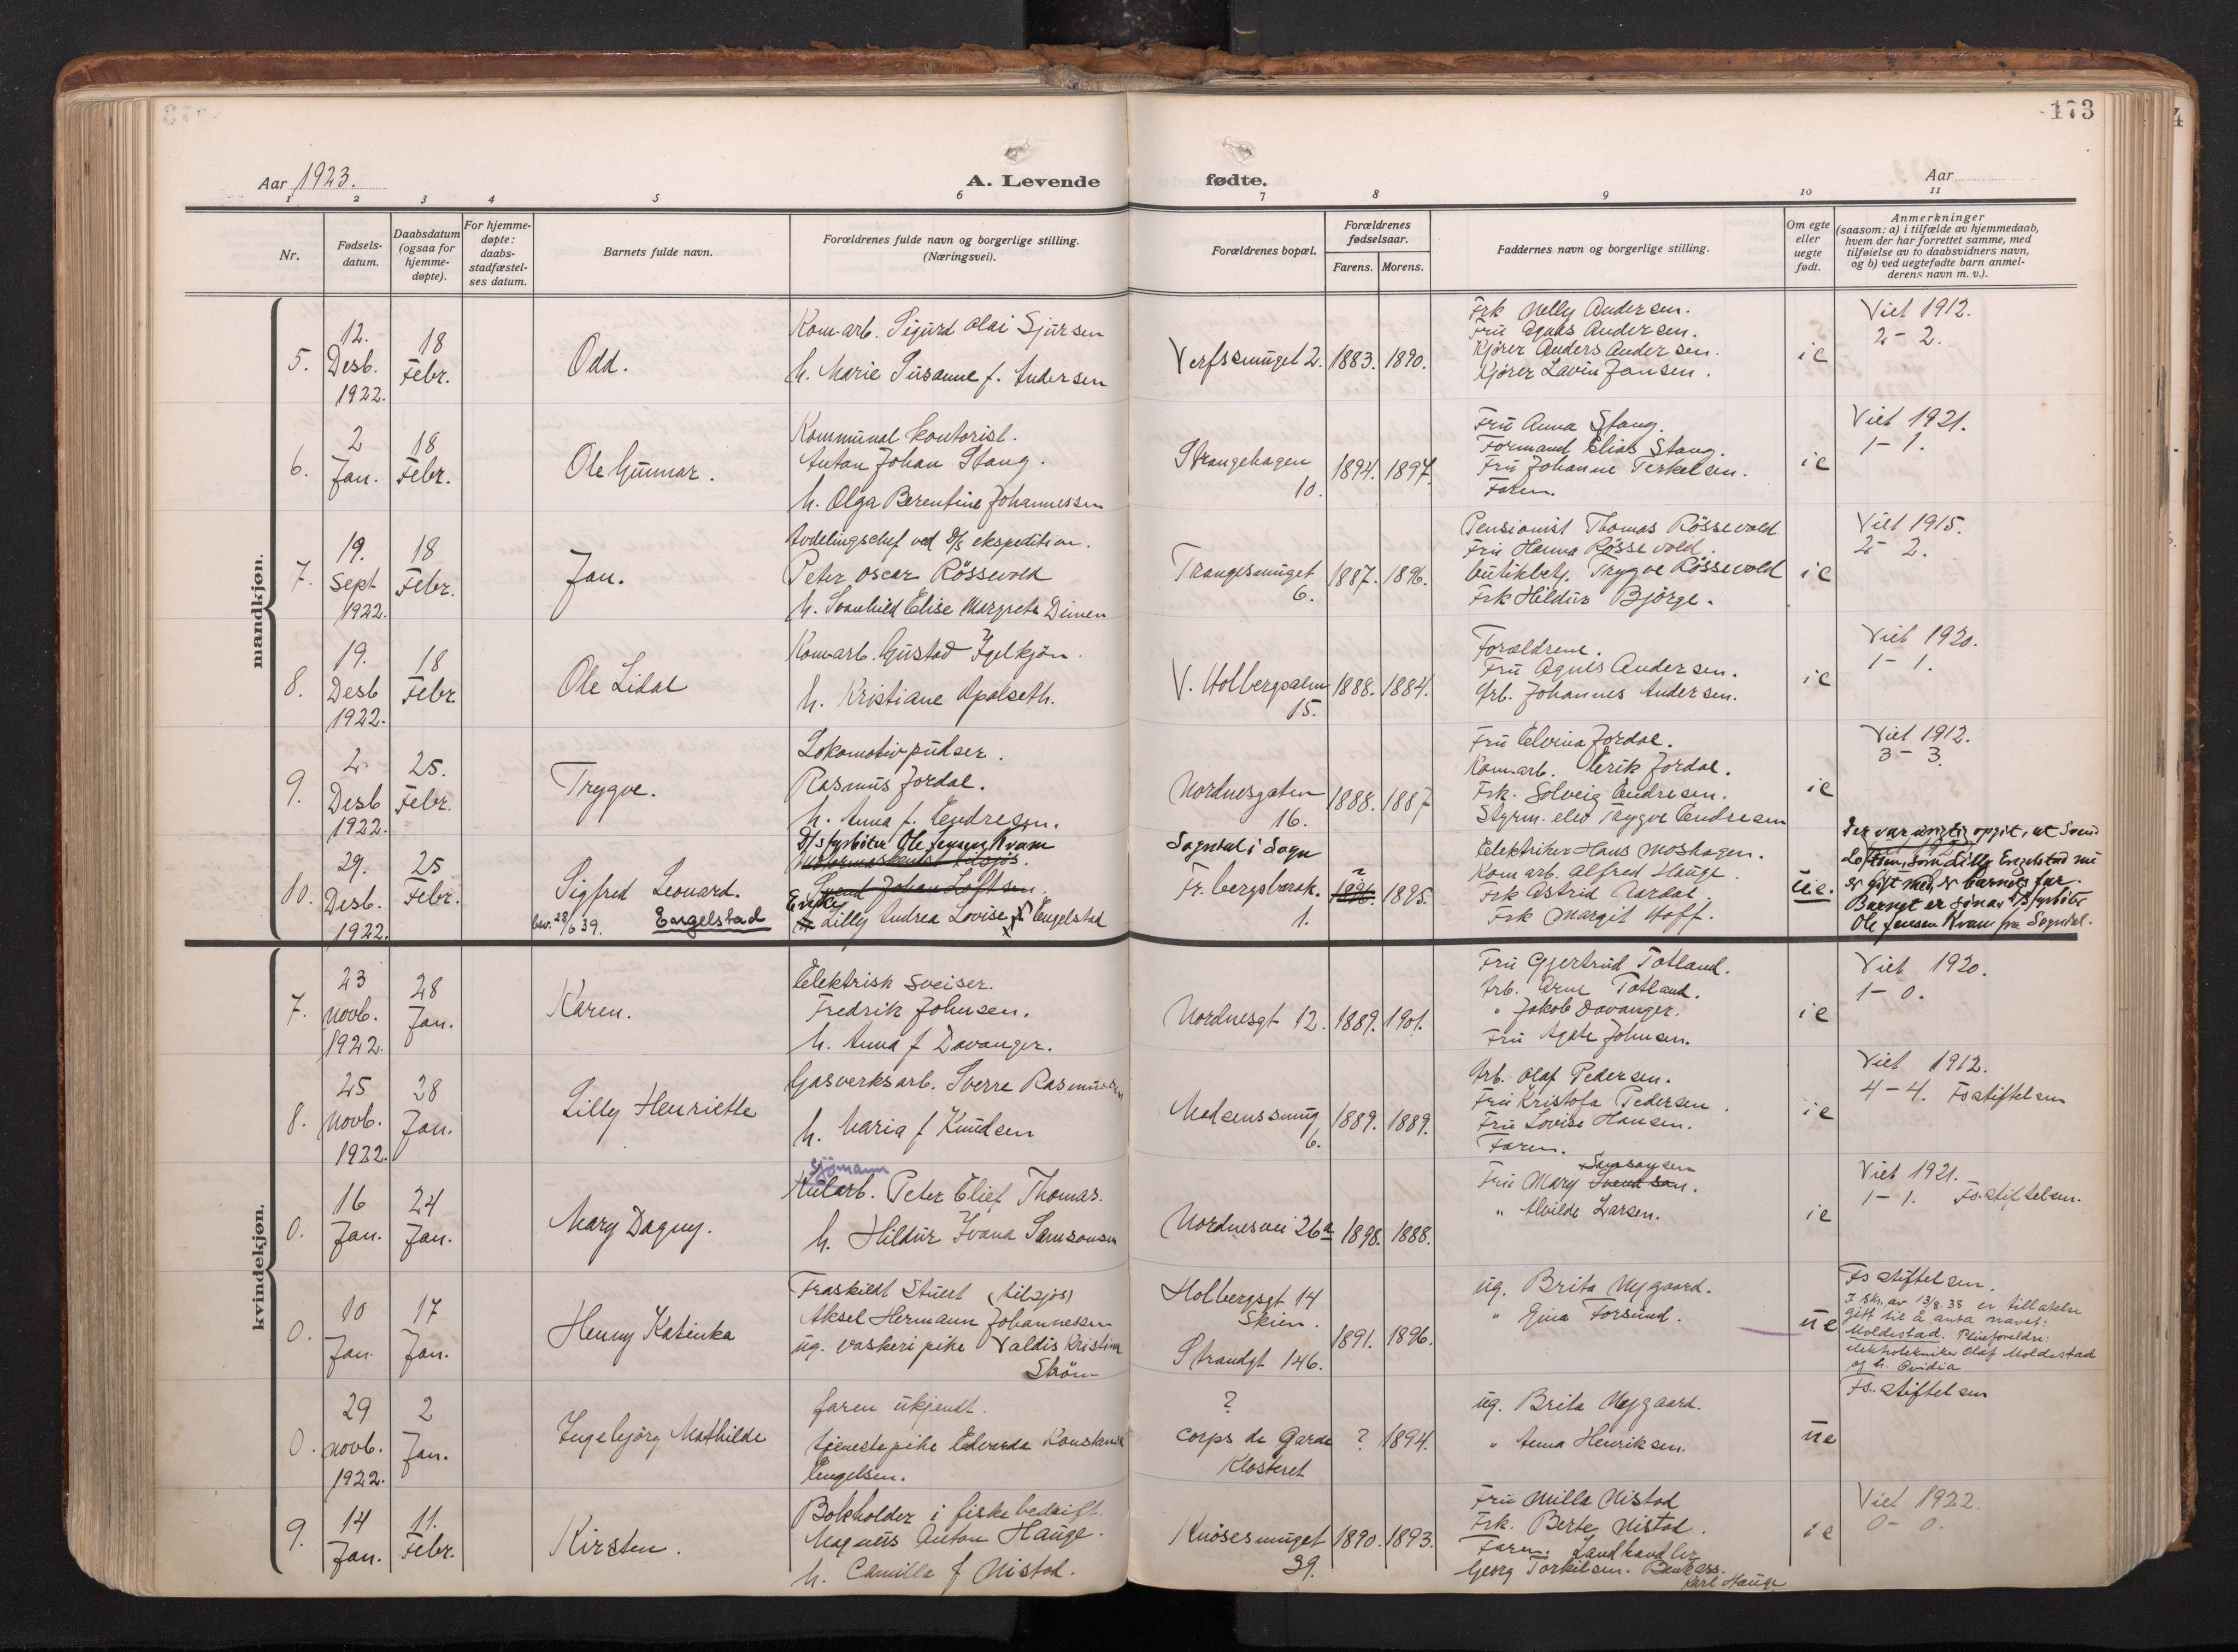 173
Aar 1923.
A. Levende
fødte.
Aar
1 2 3 4 5 6 7 8 9 10 11
Nr.
Fødsels-
datum.
Daabsdatum
(ogsaa for
hjemme-
døpte).
For hjemme-
døpte:
daabs-
stadfæstel-
ses datum.
Barnets fulde navn.
Forældrenes fulde navn og borgerlige stilling.
(Næringsvei).
Forældrenes bopæl.
Forældrenes
fødselsaar.
Farens. Morens.
Faddernes navn og borgerlige stilling.
Om egte
eller
uegte
født.
Anmerkninger
(saasom: a) i tilfælde av hjemmedaab,
hvem der har forrettet samme, med
tilføielse av to daabsvidners navn,
og b) ved uegtefødte barn anmel-
derens navn m. v.).
mandkjøn.
5.
12.
Desb.
1922.
18
Febr.
Odd.
Kom.arb. Sigurd Olai Sjursen
h. Marie Susanne f. Andersen
Verfssmuget 2.
1883.
1890.
Frk Nelly Andersen.
Fru Agnes Andersen.
Kjører Anders Andersen.
Kjører Lavin Jansen.
ie
Viet 1912.
2 - 2.
6.
2
Jan.
18
Febr.
Ole Gunnar.
Kommunal kontorist.
Anton Johan Stang.
h. Olga Berentine Johannessen
Strangehagen
10.
1894.
1897.
Fru Anna Stang.
Formand Elias Stang.
Fru Johanne Terkelsen.
Faren.
ie
Viet 1921.
1 - 1.
7.
19.
Sept
1922.
18
Febr.
Jan.
Avdelingschef ved D/s ekspedition.
Peter Oscar Rössevold
h. Svanhild Elise Margrete Dimen
Trangesmuget
6.
1887.
1896.
Pensionist Thomas Rössevold
Fru Hanna Rössevold.
butikbetj. Trygve Rössevold
Frk Hildur Bjørge.
ie
Viet 1915.
2 - 2.
8.
19.
Desb
1922.
18
Febr.
Ole Lidal
Kom.arb. Gustad Igelkjøn.
h. Kristiane Apalseth.
V. Holbergsalm
15.
1888.
1884.
Forældrene.
Fru Agnes Andersen.
Arb. Johannes Andersen.
ie
Viet 1920.
1 - 1.
9.
2
Desb
1922.
25.
Febr.
Trygve.
Lokomotivpudser.
Rasmus Jordal.
h. Anna f. Endresen.
Nordnesgaten
16.
1888.
1887
Fru Elvina Jordal.
Kom.arb. Erik Jordal.
Frk. Solveig Endresen.
Styrm. elev Trygve Endresen
ie
Viet 1912.
3 - 3.
10.
29.
Desb.
1922.
25
Febr.
Sigfred Leonard.
bev. 28/6 39. Engelstad
D/s fyrbøter Ole Jensen Kvam
Svend Johan Loftsen.
Enke
h Lilly Andrea Lovise f Engelstad
Sogndal i Sogn
Fr. bergsbarak.
1.
1896.
1895.
Elektriker Hans Moshagen.
Kom arb. Alfred Hauge.
Frk Astrid Aardal.
Frk Margit Hoff.
uie.
Der var urigtig opgit, at Svend
Loftsen, som Lilly Engelstad nu
er gift med, er barnets far.
Barnet er sønav D/s fyrbøter
Ole Jensen Kvam fra Sogndal.
kvindekjøn.
7.
23
Novb.
1922.
28
Jan.
Karen.
Elektrisk sveiser.
Fredrik Johnsen.
h. Anna f Davanger.
Nordnesgt 12.
1889.
1901.
Fru Gjertrud Totland.
Arb. Arne Totland.
" Jakob Davanger.
Fru Agate Johnsen.
ie
Viet 1920.
1 - 0.
8.
25
Novb.
1922.
28
Jan.
Lilly Henriette
Gasverksarb. Sverre Rasmussen
h. Maria f Knudsen
Madsenssmug
6.
1889.
1889.
Arb. Olaf Pedersen.
Fru Kristofa Pedersen.
Fru Lovise Hansen.
Faren.
ie
Viet 1912.
4 - 4. Fs stiftelsen
0.
16
Jan.
24
Jan.
Mary Dagny.
Sjømann
Kularb. Peter Elief Thomas.
h. Hildur Ivana Samsonsen
Nordnesvei 26a
1898.
1888.
Samsonsen
Fru Mary Svendsen.
" Alvilde Larsen.
ie
Viet 1921.
1 - 1. Fs. stiftelsen.
0.
10
Jan.
17
Jan.
Henny Katinka
Fraskildt Stuert (tilsjøs)
Aksel Hermann Johannessen
ug. vaskeripike Valdis Kristine
Strøm
Holbergsgt 14
Skien.
Strandgt 146.
1891.
1896.
ug. Brita Nygaard.
" Gina Forsund.
ue
Fs stiftelsen.
I skr. av 13/8.38 er tillatelse
gitt til å anta navnet:
Moldestad. Pleieforeldre:
elektrotekniker Olaf Moldestad
og h. Ovidia
0.
29
Novb.
1922.
2
Jan.
Ingebjørg Mathilde
faren ukjendt.
tjenestepike Edvarda Konstanse
Engelsen.
?
Corps de Garde
Klosteret
?
1894.
ug. Brita Nygaard.
" Anna Henriksen.
ue
Fs. stiftelsen
9.
14
Jan.
11.
Febr.
Kirsten.
Bokholder i fiskebedrift.
Magnus Anton Hauge.
h. Camilla f Nistad.
Knøsesmuget
39.
1890.
1893.
Fru Milla Nistad
Frk. Berte Nistad.
Faren. Landhandler
Georg Torkilsen. Bankass.
Karl Hauge
ie
Viet 1922.
0 - 0.